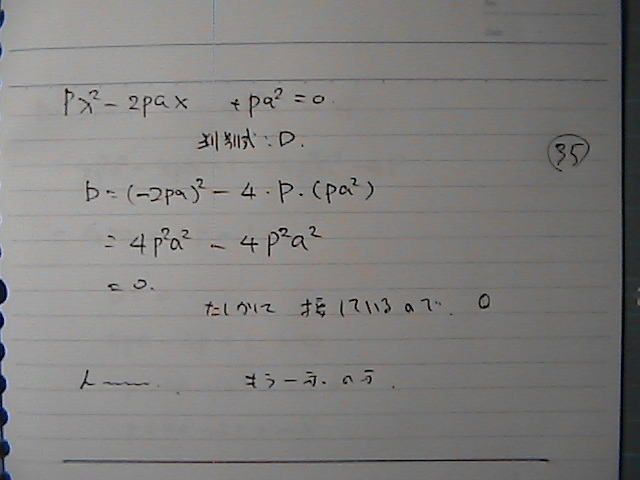 Px² - 2pax + pa² = 0.
判別式:D.
㉟
D = (-2pa)² - 4・P・(pa²)
= 4p²a² - 4p²a²
= 0.
たしかに 接しているので. 0
もう一方の方.